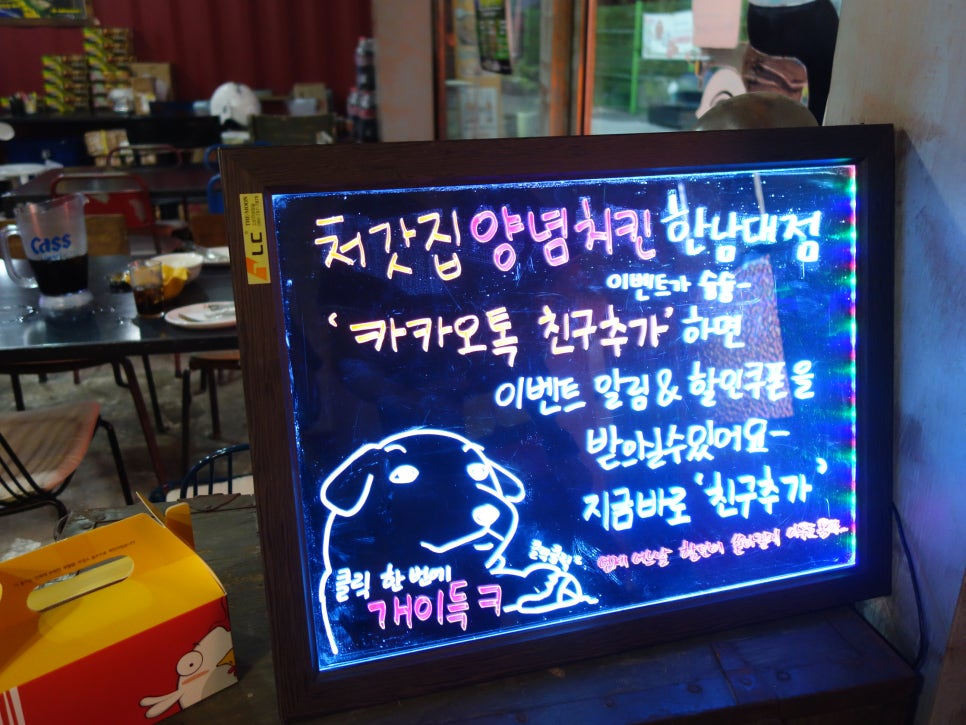 처갓집 양념치킨 한남대점
이벤트가 슝슝~
'카카오톡 친구추가' 하면
이벤트 알림 & 할인쿠폰을
받으실수있어요~
지금바로 '친구추가'
할인이
클릭 한 번에
개이득ㅋ
Cass